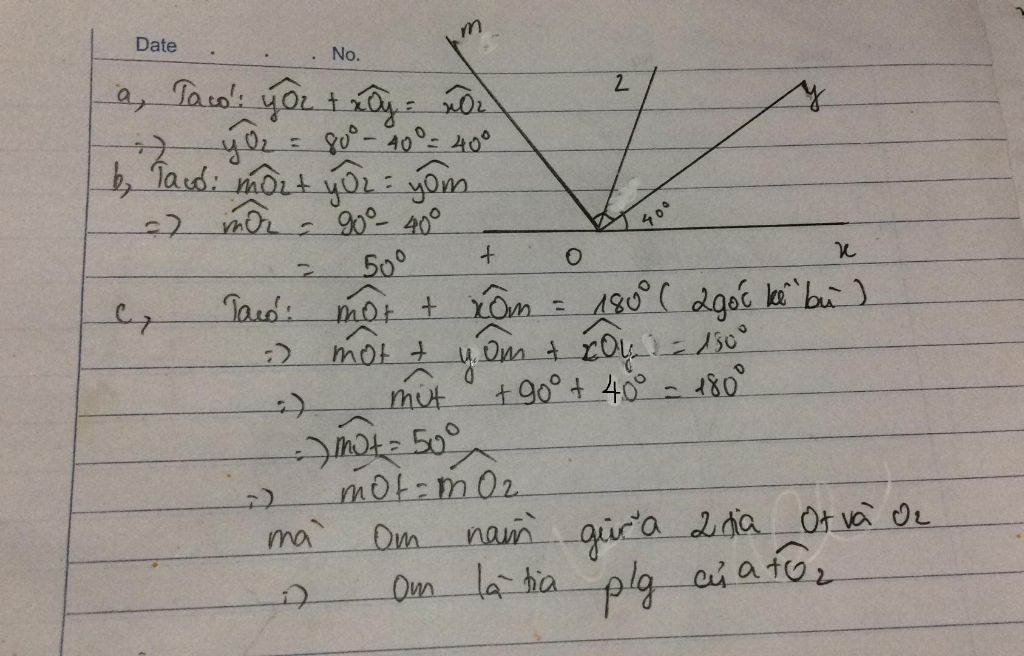 Date . . . No.
a, Ta có: yOz + xOy = xOz
=> yOz = 80° - 40° = 40°
b, Ta có: mOz + yOz = yOm
=> mOz = 90° - 40°
= 50°
m
z
y
40°
t
O
x
c, Ta có: mOt + xOm = 180° ( 2 góc kề bù )
=> mOt + yOm + xOy = 180°
=> mOt + 90° + 40° = 180°
=> mOt = 50°
=> mOt = mOz
mà Om nằm giữa 2 tia Ot và Oz
=> Om là tia p/g của tOz